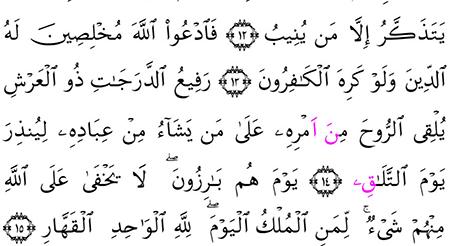 يَتَذَكَّرُ إِلَّا مَن يُنِيبُ ﴿١٢﴾ فَٱدْعُوا۟ ٱللَّهَ مُخْلِصِينَ لَهُ
ٱلدِّينَ وَلَوْ كَرِهَ ٱلْكَٰفِرُونَ ﴿١٣﴾ رَفِيعُ ٱلدَّرَجَٰتِ ذُو ٱلْعَرْشِ
يُلْقِى ٱلرُّوحَ مِنَ ٱمْرِهِۦ عَلَىٰ مَن يَشَآءُ مِنْ عِبَادِهِۦ لِيُنذِرَ
يَوْمَ ٱلتَّلَٰقِۦ ﴿١٤﴾ يَوْمَ هُم بَٰرِزُونَ ۖ لَا يَخْفَىٰ عَلَى ٱللَّهِ
مِنْهُمْ شَىْءٌ ۚ لِّمَنِ ٱلْمُلْكُ ٱلْيَوْمَ ۖ لِلَّهِ ٱلْوَٰحِدِ ٱلْقَهَّارِ ﴿١٥﴾